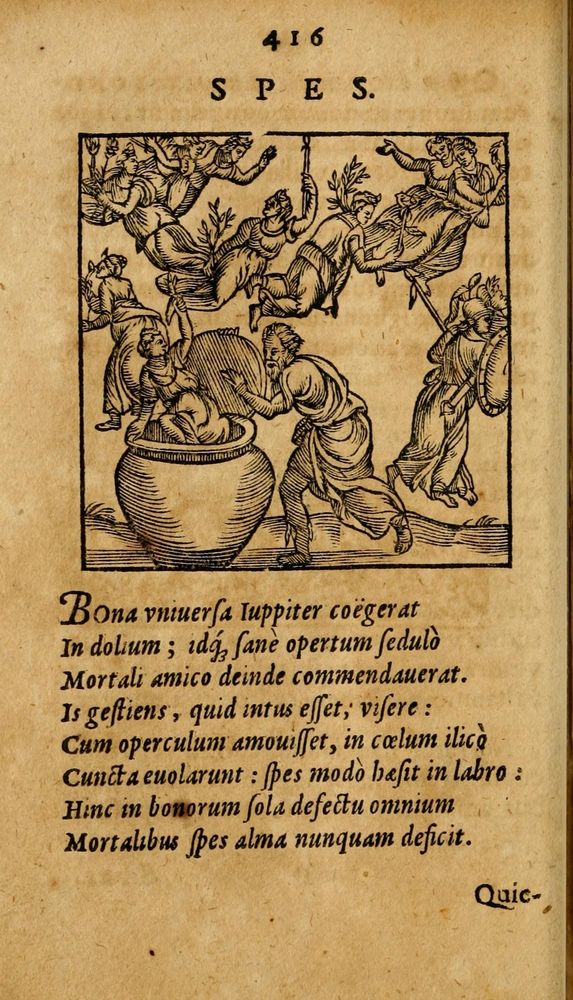 416
SPES.
BOna vniuerſa Iuppiter coëgerat
In dolium; idq́ꝫ ſanè opertum ſedulò
Mortali amico deinde commendauerat.
Is geſtiens, quid intus eſſet, viſere:
Cum operculum amouiſſet, in cœlum ilicò
Cuncta euolarunt: ſpes modò hæſit in labro:
Hinc in bonorum ſola defectu omnium
Mortalibus ſpes alma nunquam deficit.
Quic-